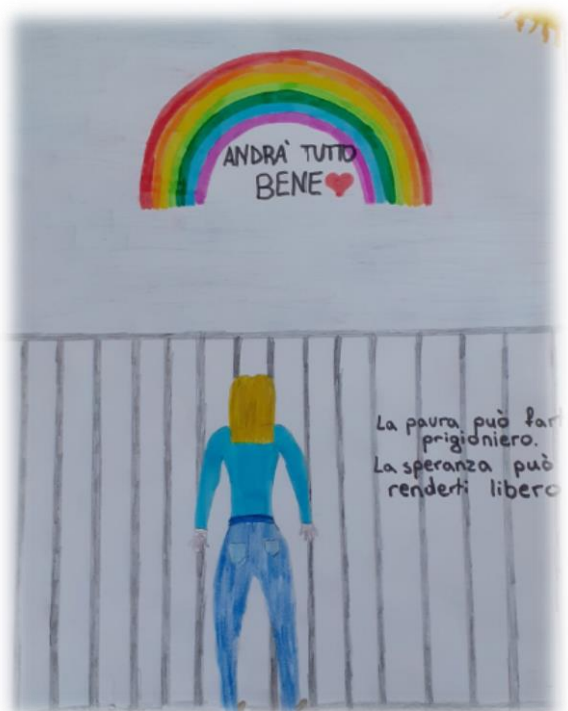 ANDRA' TUTTO
BENE
La paura può farti
prigioniero.
La speranza può
renderti libero